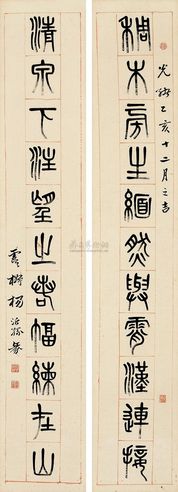 光緒乙亥十二月之吉
稠木旁生緬然與霄漢連接
清泉下注望之若幅練在山
楊沂孫篆